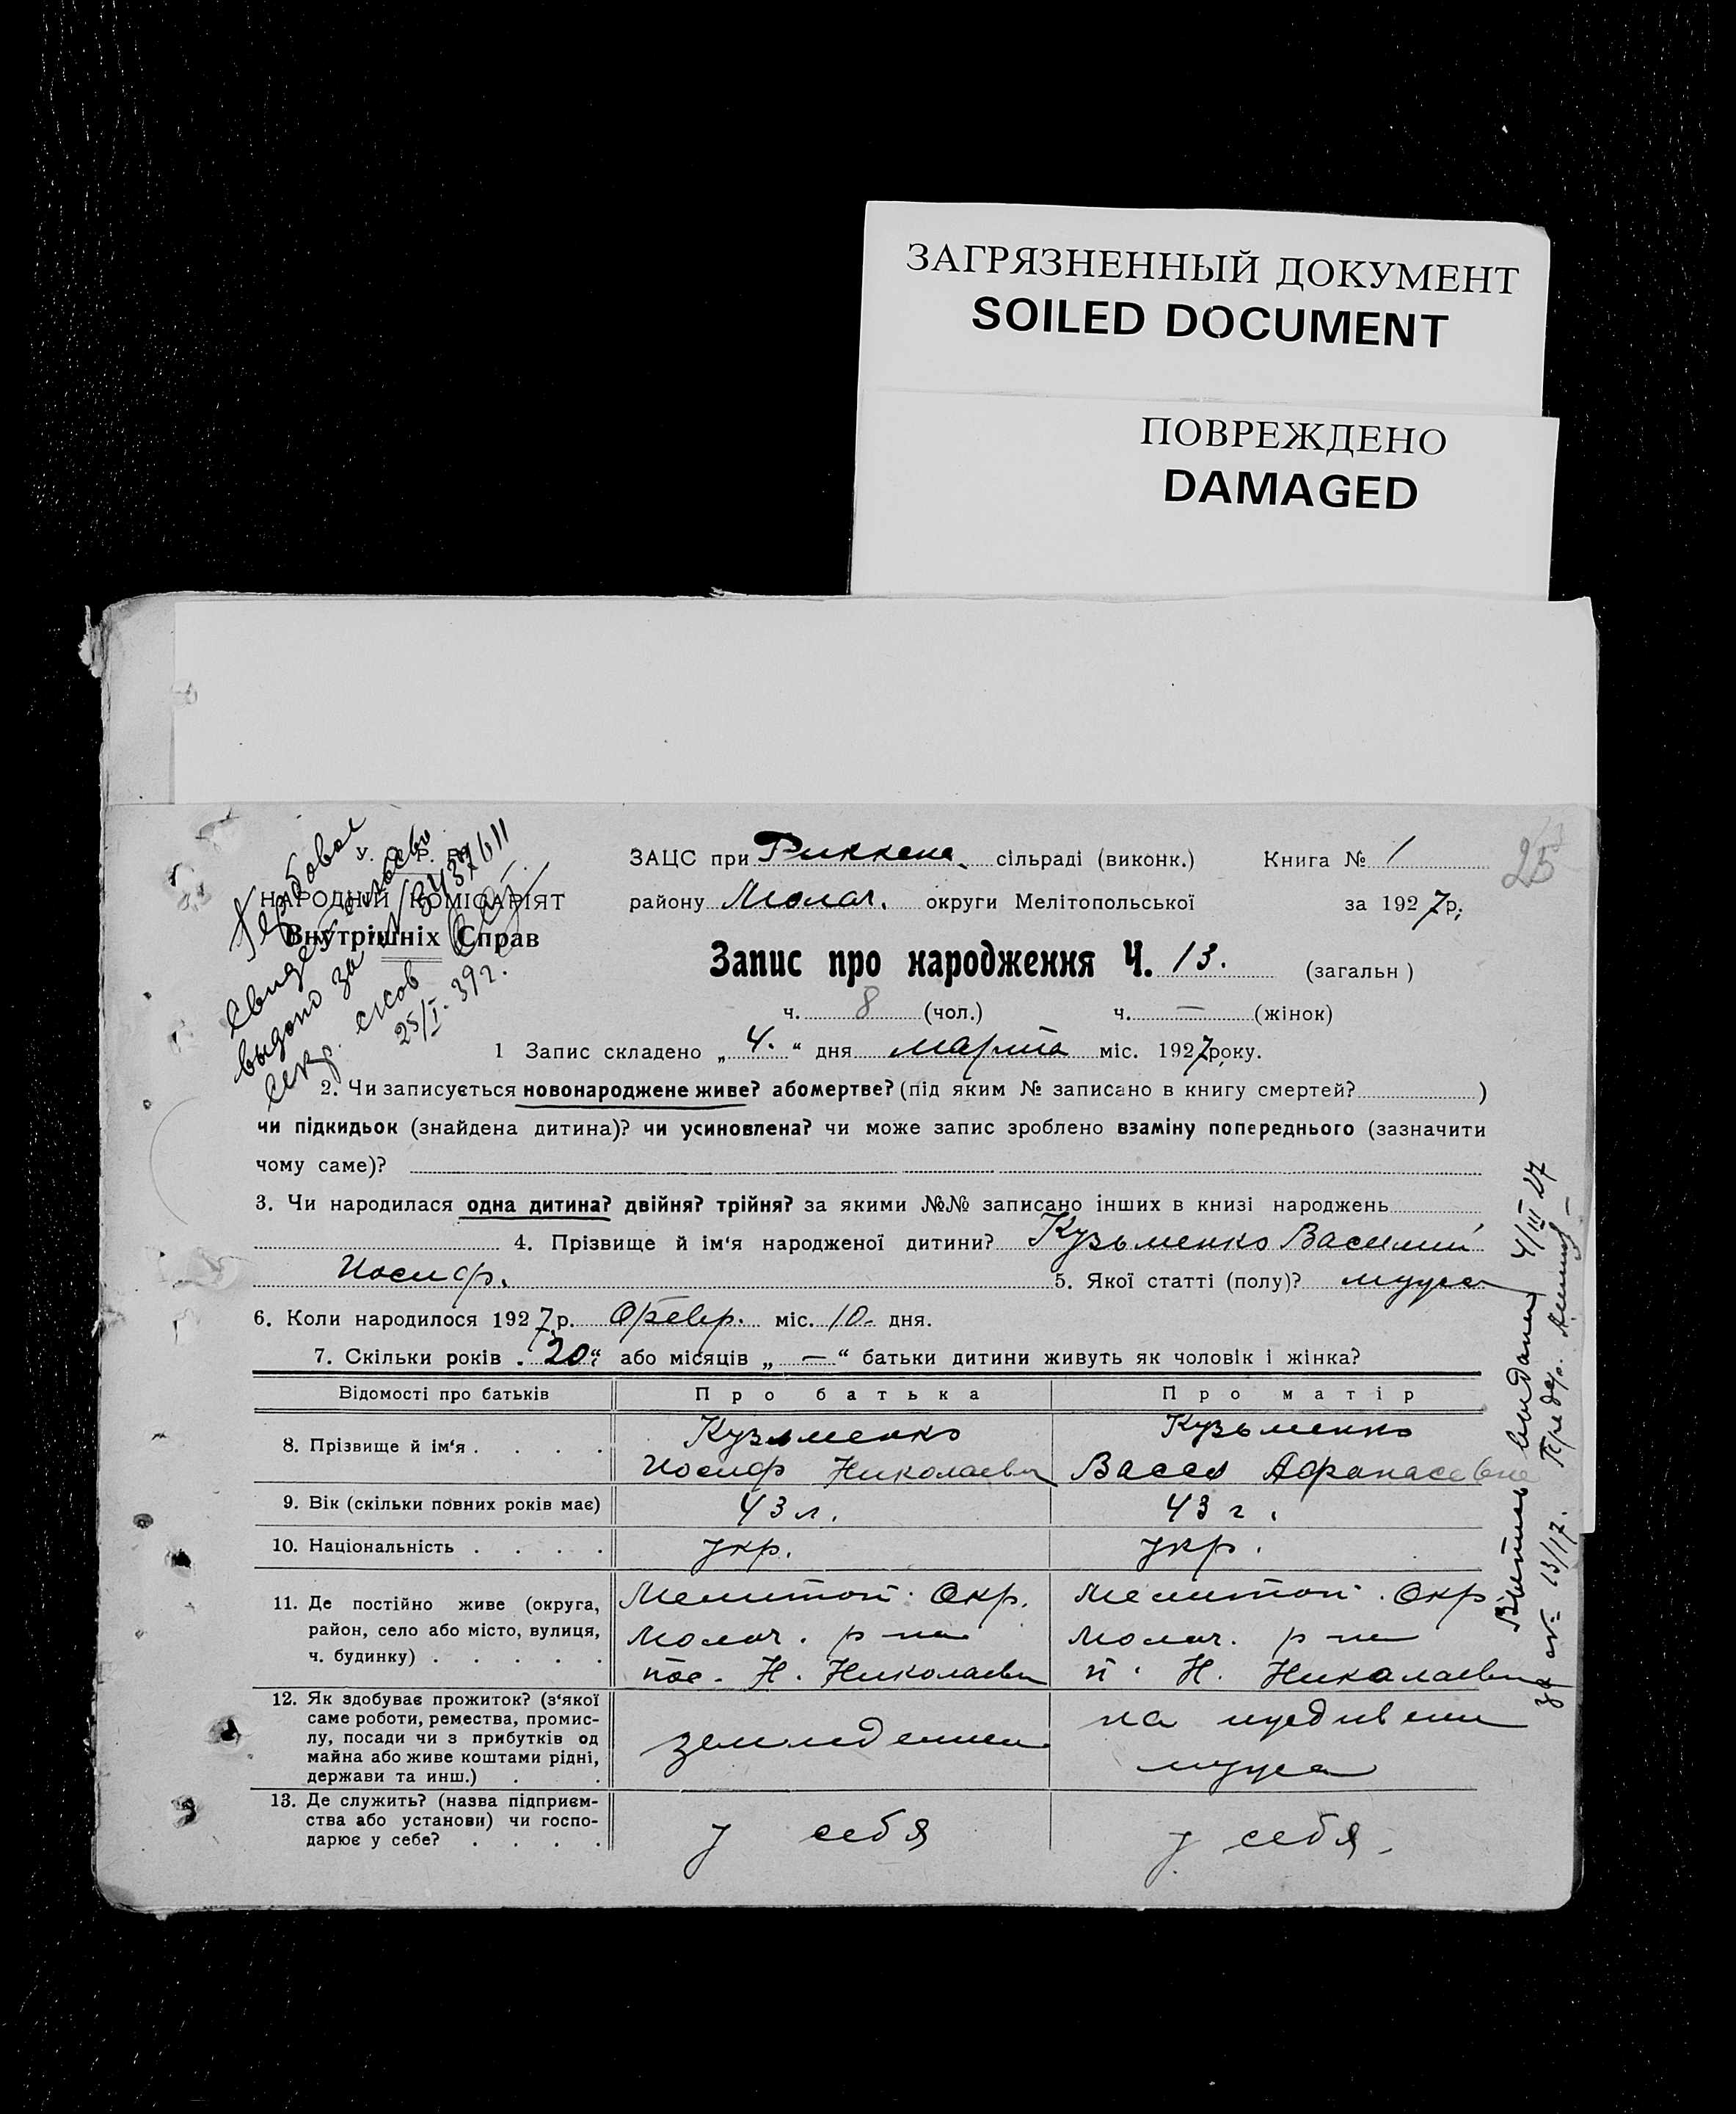 ЗАГРЯЗНЕННЫЙ ДОКУМЕНТ
SOILED DOCUMENT
ПОВРЕЖДЕНО
DAMAGED
25
У. Р.
НАРОДНІЙ КОМІСАРІЯТ
Внутрішніх Справ
выдано за
25/I-39 г.
ЗАЦС при сільраді (виконк.) Книга № 1
району Молоч. округи Мелітопольської за 1927 р.
Запис про народження Ч. 13. (загальн )
ч. 8 (чол.) ч. — (жінок)
1 Запис складено „ 4. “ дня марта міс. 1927 року.
2. Чи записується новонароджене живе? або мертве? (під яким № записано в книгу смертей? )
чи підкидьок (знайдена дитина)? чи усиновлена? чи може запис зроблено взаміну попереднього (зазначити
чому саме)?
3. Чи народилася одна дитина? двійня? трійня? за якими №№ записано інших в книзі народжень
4. Прізвище й ім‘я народженої дитини? Кузьменко Василий
Иосиф. 5. Якої статті (полу)? мужс
6. Коли народилося 1927 р. Февр. міс. 10 дня.
7. Скільки років „ 20 “ або місяців „ — “ батьки дитини живуть як чоловік і жінка?
Відомості про батьків Про батька Про матір
8. Прізвище й ім‘я . . . . Кузьменко Кузьменко
Иосиф Николаевич Васса Афанасевна
9. Вік (скільки повних років має) 43 л. 43 г.
10. Національність . . . . укр. укр.
11. Де постійно живе (округа, район, село або місто, вулиця, ч. будинку) . . . . .
Мелитоп. Окр. Мелитоп. Окр.
Молоч. р-на Молоч. р-на
пос. Н. Николаевка п. Н. Николаевка
12. Як здобуває прожиток? (з‘якої
саме роботи, ремества, промис-
лу, посади чи з прибутків од
майна або живе коштами рідні,
держави та инш.) . .
земледелием на иждивении
мужа
13. Де служить? (назва підприєм-
ства або установи) чи госпо-
дарює у себе? . . . .
у себя у себя.
выдана 4/III 27
за № 13/17. Предс.